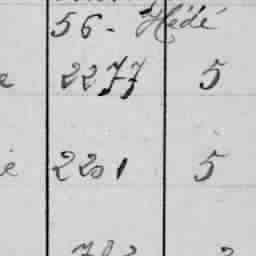 56 - Hédé
2277 5
2201 5